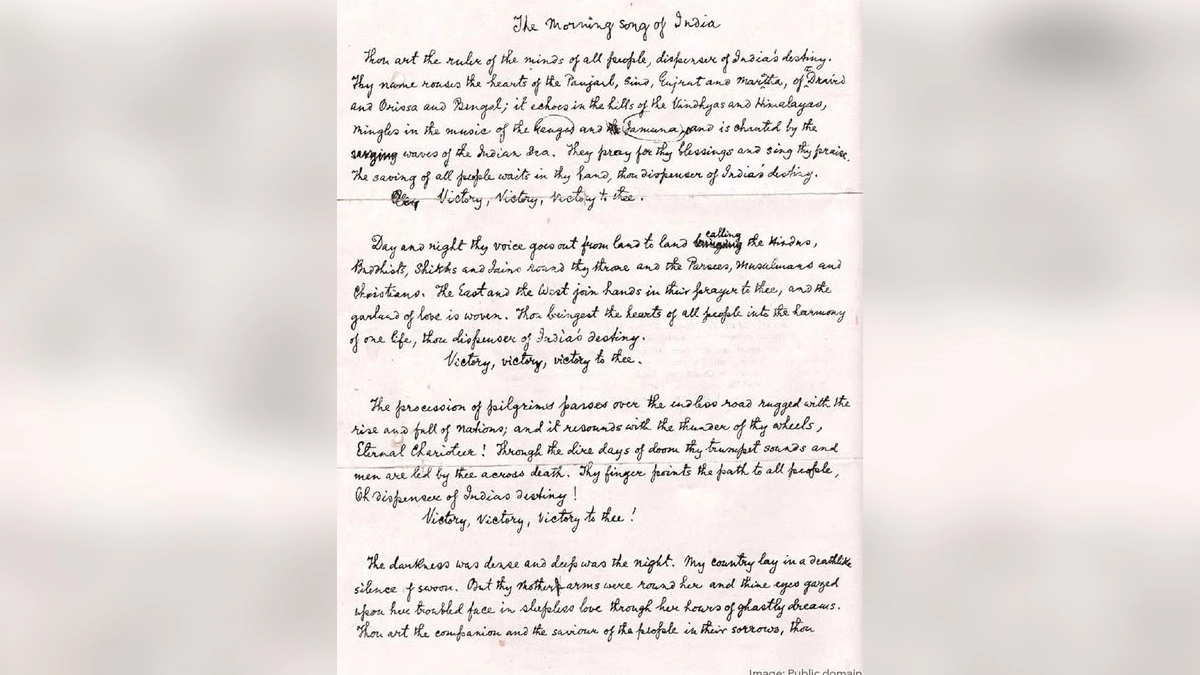 The Morning song of India
Thou art the ruler of the minds of all people, dispenser of India's destiny.
Thy name rouses the hearts of the Panjab, Sind, Gujrat and Maratta, of Dravid
and Orissa and Bengal; it echoes in the hills of the Vindhyas and Himalayas,
mingles in the music of the Ganges and Jamuna and is chanted by the
waves of the Indian Sea. They pray for thy blessings and sing thy praise.
The saving of all people waits in thy hand, thou dispenser of India's destiny.
Victory, Victory, Victory to thee.
Day and night thy voice goes out from land to land calling the Hindus,
Buddhists, Shikhs and Jains round thy throne and the Parsees, Musulmans and
Christians. The East and the West join hands in their prayer to thee, and the
garland of love is woven. Thou bringest the hearts of all people into the harmony
of one life, thou dispenser of India's destiny.
Victory, victory, victory to thee.
The procession of pilgrims passes over the endless road rugged with the
rise and fall of nations; and it resounds with the thunder of thy wheels,
Eternal Charioteer! Through the dire days of doom thy trumpet sounds and
men are led by thee across death. Thy finger points the path to all people,
Oh dispenser of Indias destiny!
Victory, Victory, Victory to thee!
The darkness was dense and deep was the night. My country lay in a deathlike
silence of swoon. But thy mother arms were round her and thine eyes gazed
upon her troubled face in sleepless love through her hours of ghastly dreams.
Thou art the companion and the saviour of the people in their sorrows, thou
Image: Public domain